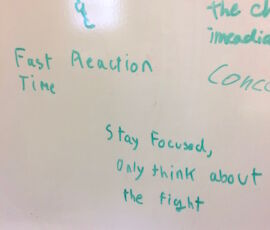 the ch
imeadia
Conc
Fast Reaction
Time
Stay Focused,
Only think about
the fight